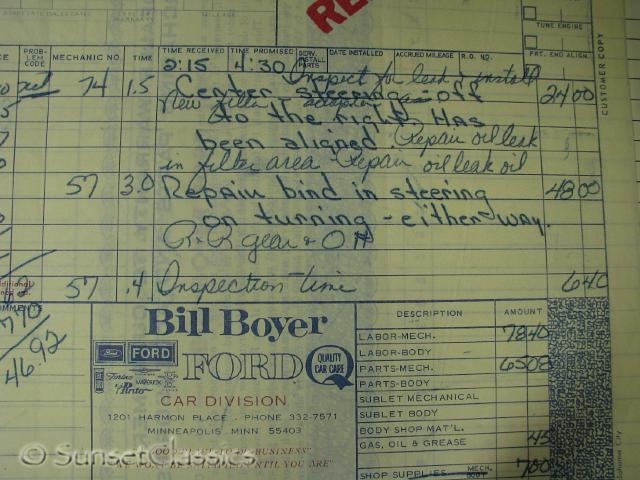 RE
TUNE ENGINE
FRT. END ALIGN.
CUSTOMER COPY
PROB-LEM CODE MECHANIC NO. TIME TIME RECEIVED TIME PROMISED SERV. INSTALL PARTS DATE INSTALLED ACCRUED MILEAGE R.O. NO.
2:15 4:30
Inspect for leak & install
74 1.5 Center steering - off 24 00
New filter adapter
to the right. Has
been aligned. Repair oil leak
in filter area Repair oil leak oil
57 3.0 Repair bind in steering 48 00
on turning - either way.
R+R gear & OH
57 .4 Inspection time 640
COMMENTS
46.92
Bill Boyer
FORD FORD
Torino
Pinto
QUALITY CAR CARE
CAR DIVISION
1201 HARMON PLACE - PHONE 332-7571
MINNEAPOLIS, MINN 55403
DESCRIPTION AMOUNT
LABOR-MECH. 7840
LABOR-BODY
PARTS-MECH. 6508
PARTS-BODY
SUBLET MECHANICAL
SUBLET BODY
BODY SHOP MAT'L.
GAS, OIL & GREASE 45
SHOP SUPPLIES MECH. 700
© SunsetClassics